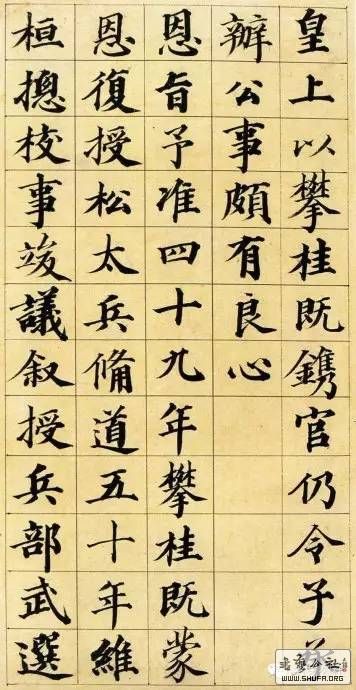 皇上以攀桂既鐫官仍令子
辦公事頗有良心
恩旨予准四十九年攀桂既蒙
恩復授松太兵備道五十年維
桓摠校事竣議叙授兵部武選
WWW.SHUFA.ORG